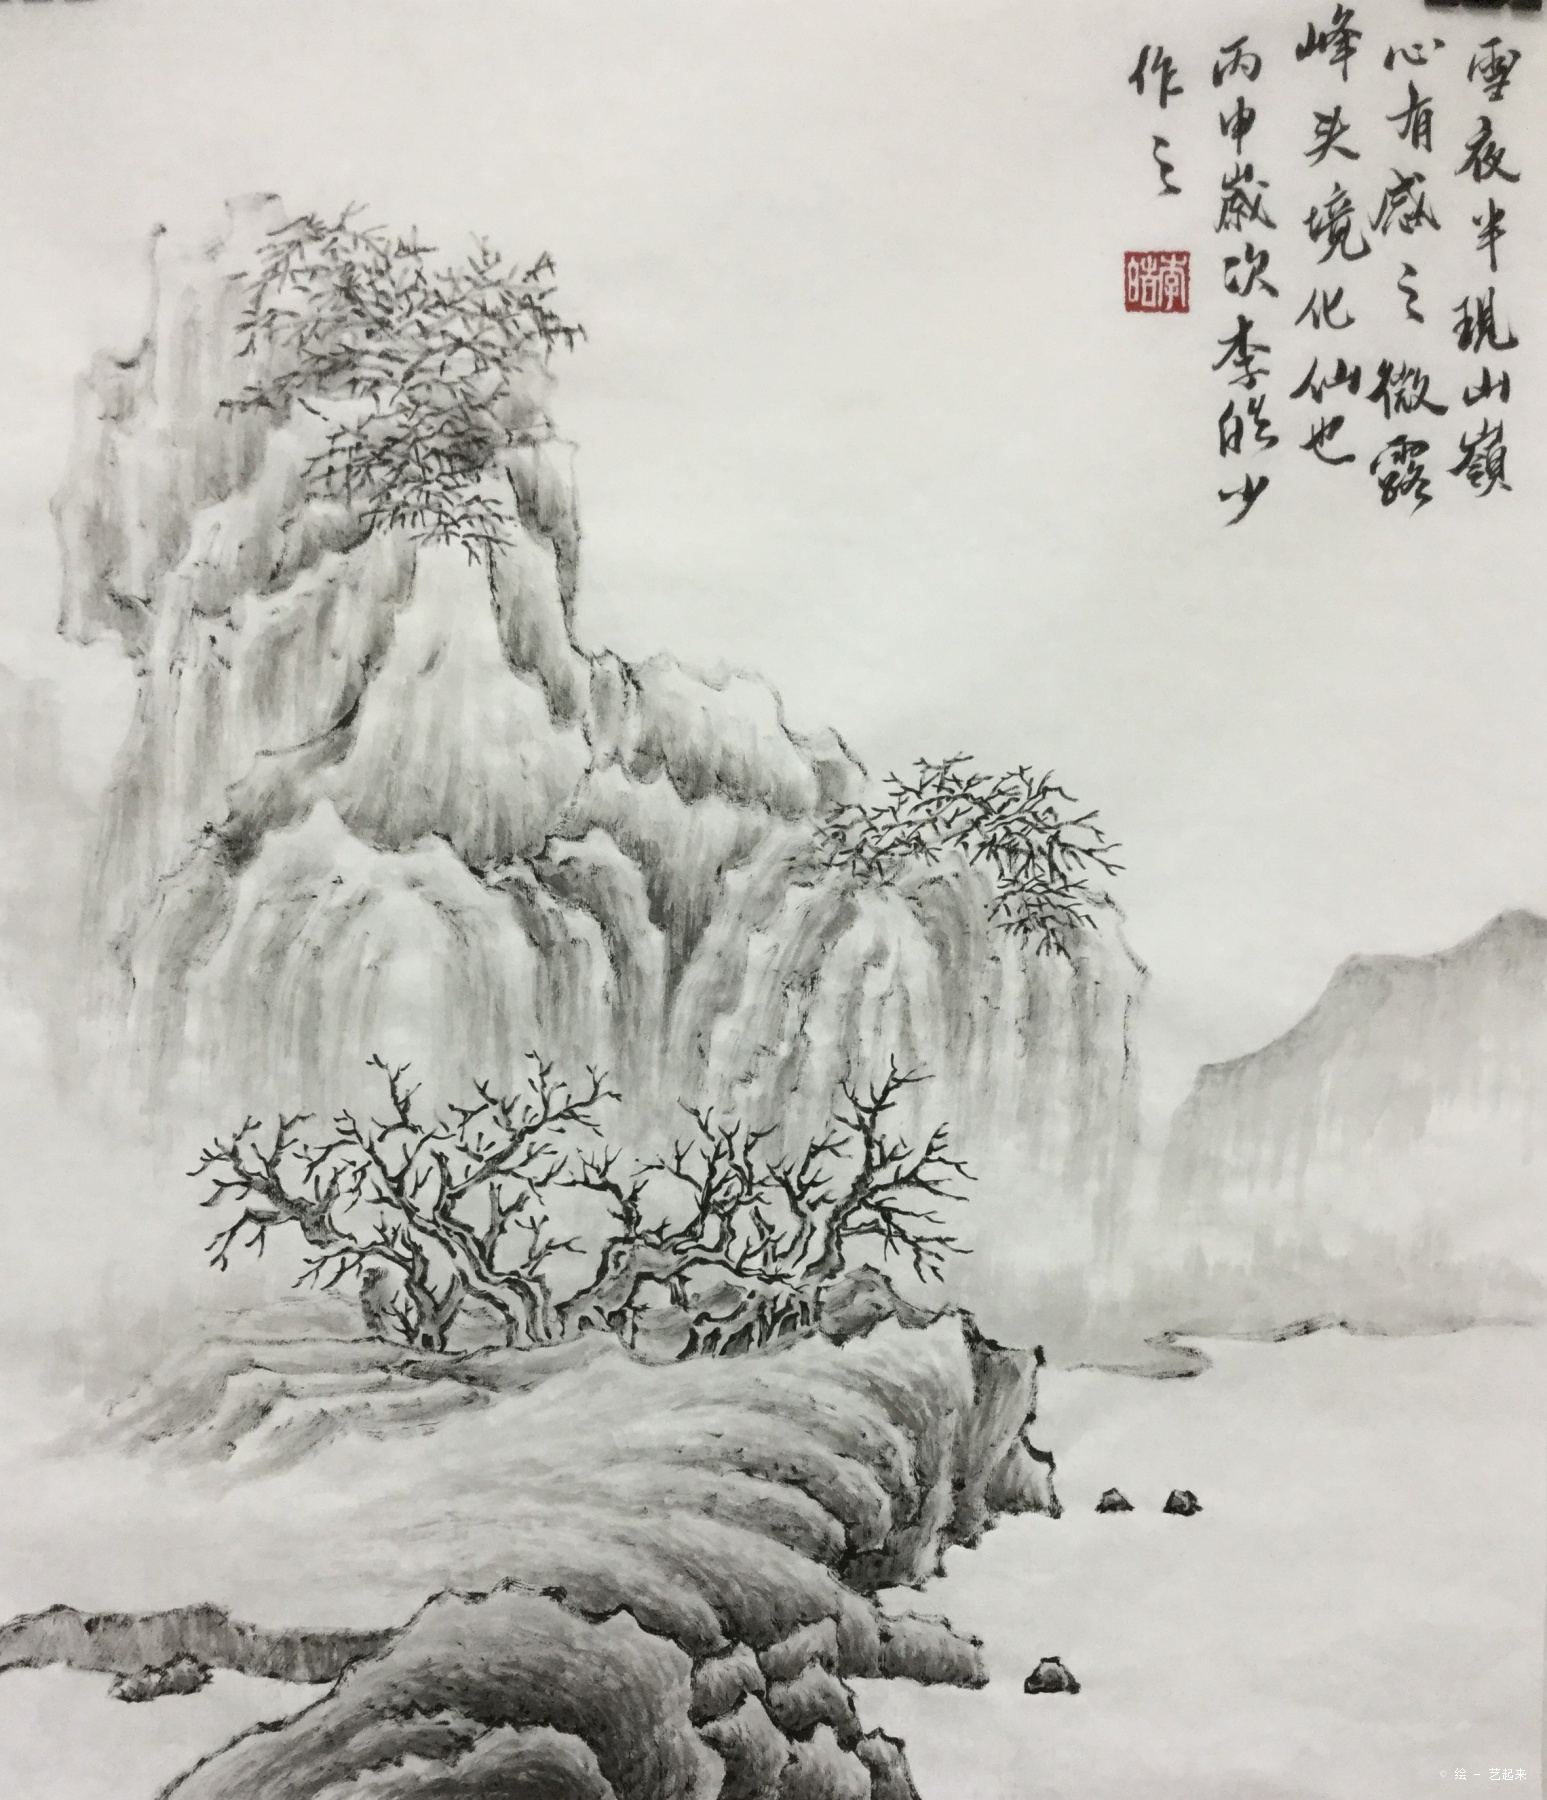 雪夜半現山嶺
心有感之微露
峰头境化仙也
丙申歲次李皓少
作之
李皓
© 绘 - 艺起来